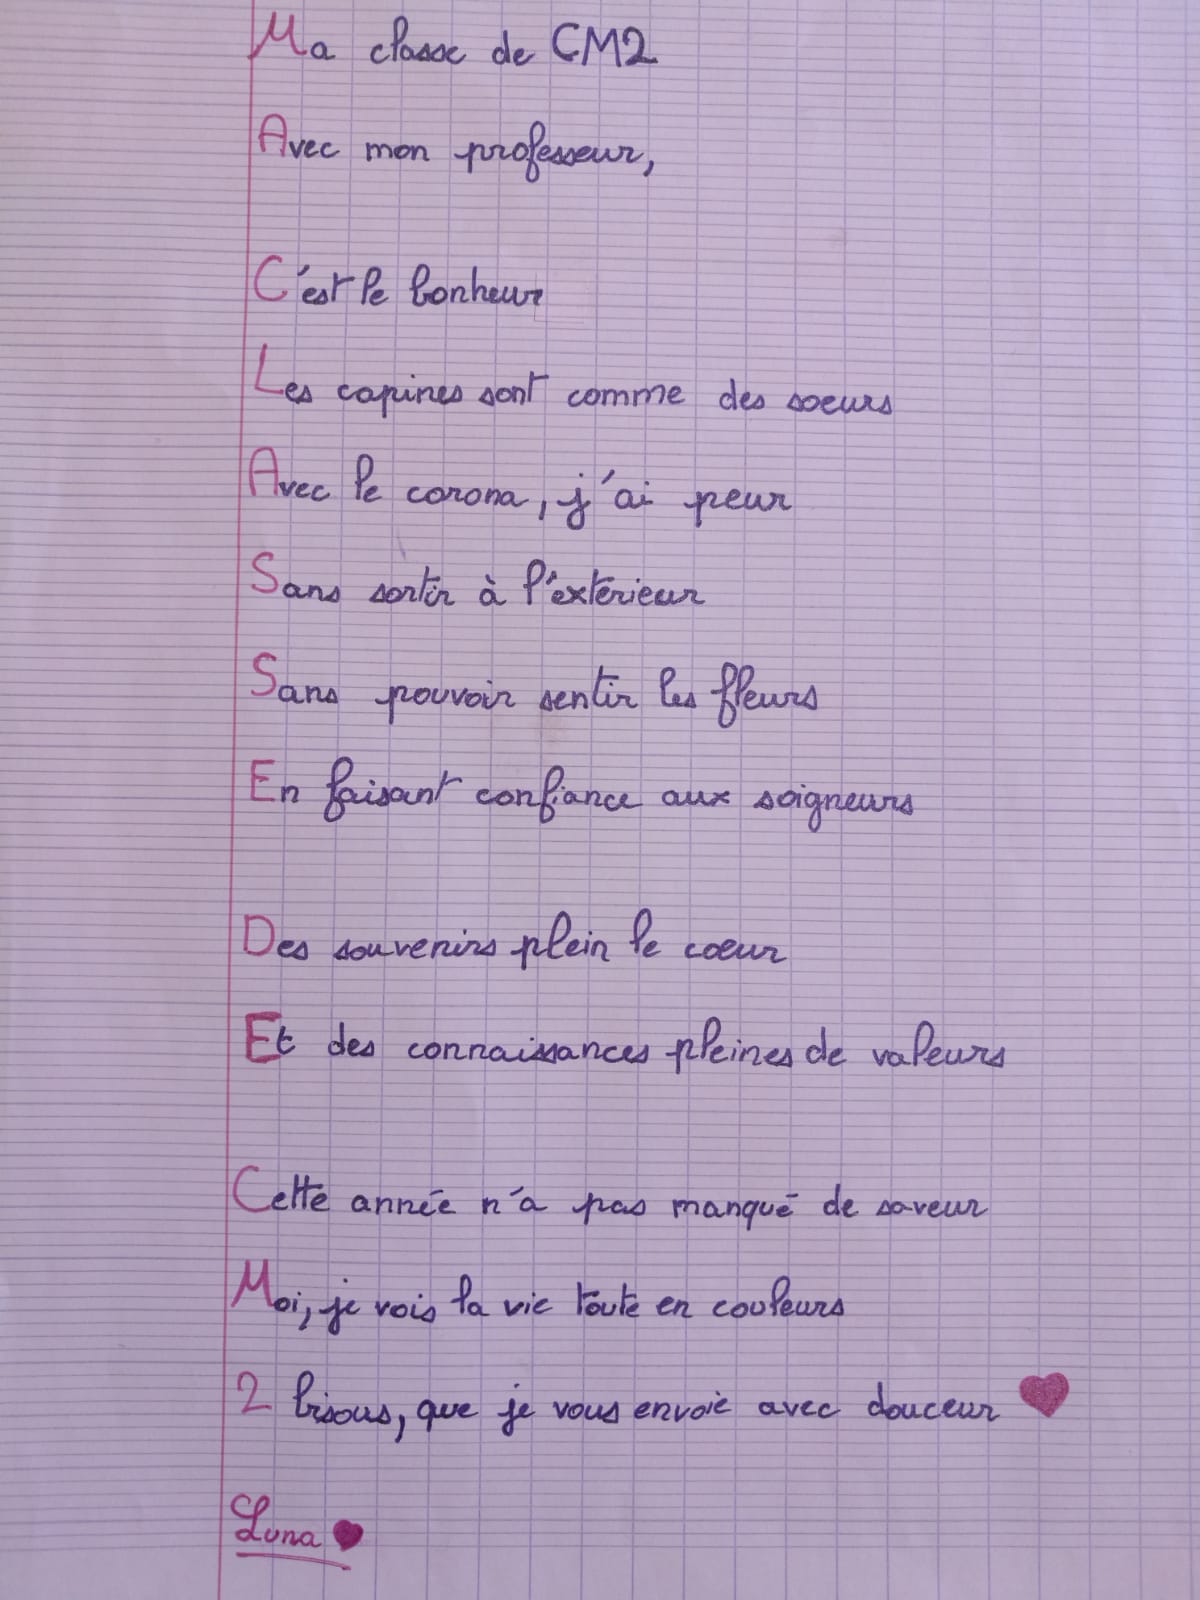 Ma classe de CM2
Avec mon professeur,
C'est le bonheur
Les copines sont comme des soeurs
Avec le corona, j'ai peur
Sans sortir à l'extérieur
Sans pouvoir sentir les fleurs
En faisant confiance aux soigneurs
Des souvenirs plein le coeur
Et des connaissances pleines de valeurs
Cette année n'a pas manqué de saveur
Moi, je vois la vie toute en couleurs
2 bisous, que je vous envoie avec douceur
Luna